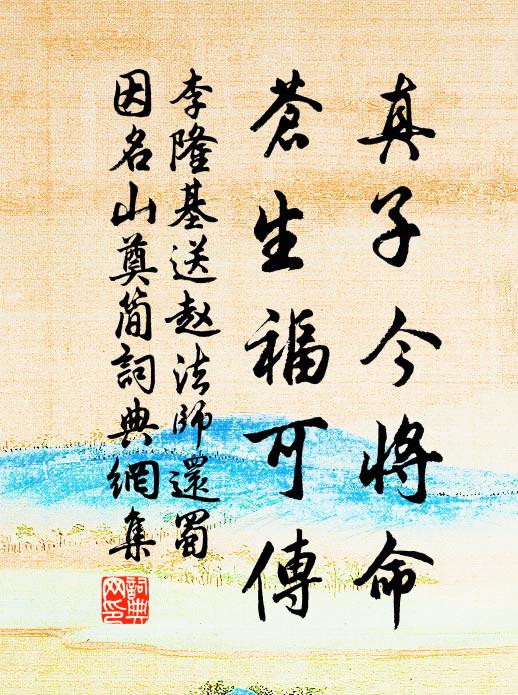 真子今将命
蒼生福可傳
李隆基送赵法師還蜀
因名山奠简詞典網集